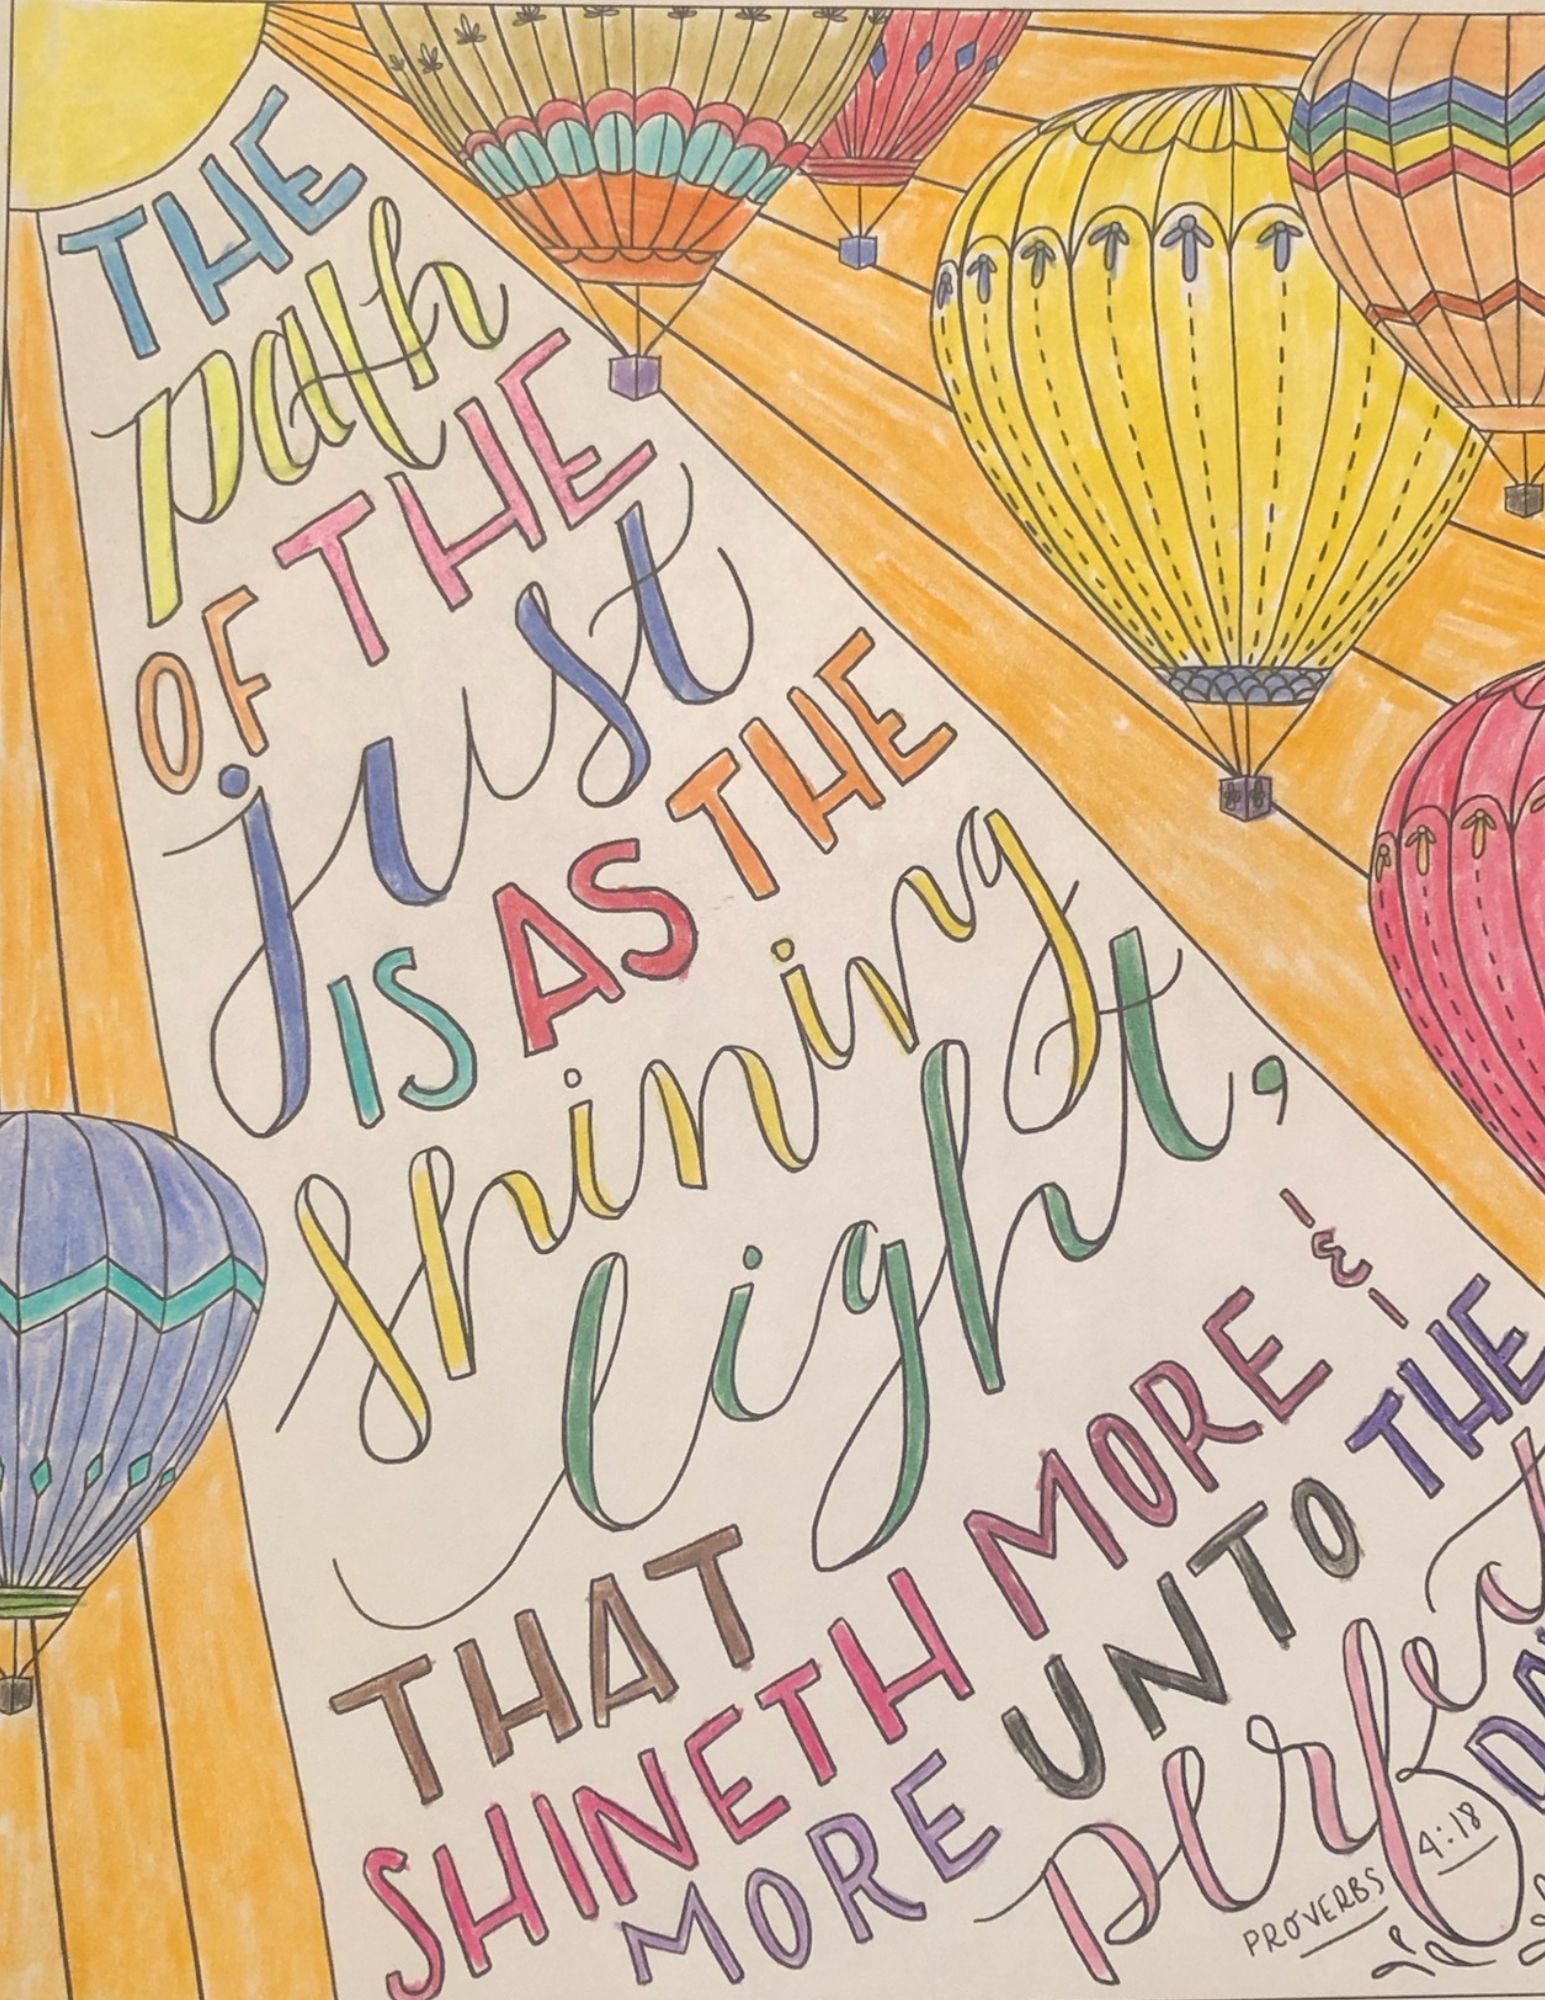 THE
path
OF THE
just
IS AS THE
shining
light,
THAT
SHINETH MORE &
MORE UNTO THE
perfect
PROVERBS 4:18